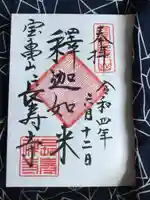 奉拝
令和四年
二月十二日
釋迦如来
宝亀山
長寿寺